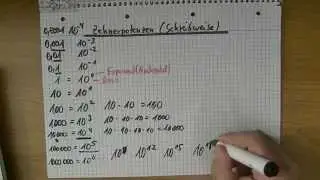 Zehnerpotenzen (Schreibweise)
0,0001 10⁻⁴
0,001 10⁻³
0,01 10⁻²
0,1 10⁻¹
1 = 10⁰ Exponent (Hochzahl)
Basis
10 = 10¹
100 = 10² 10 · 10 = 100
1000 = 10³ 10 · 10 · 10 = 1000
10000 = 10⁴ 10 · 10 · 10 · 10 = 10000
100000 = 10⁵
1000000 = 10⁶ 10¹² 10¹⁵